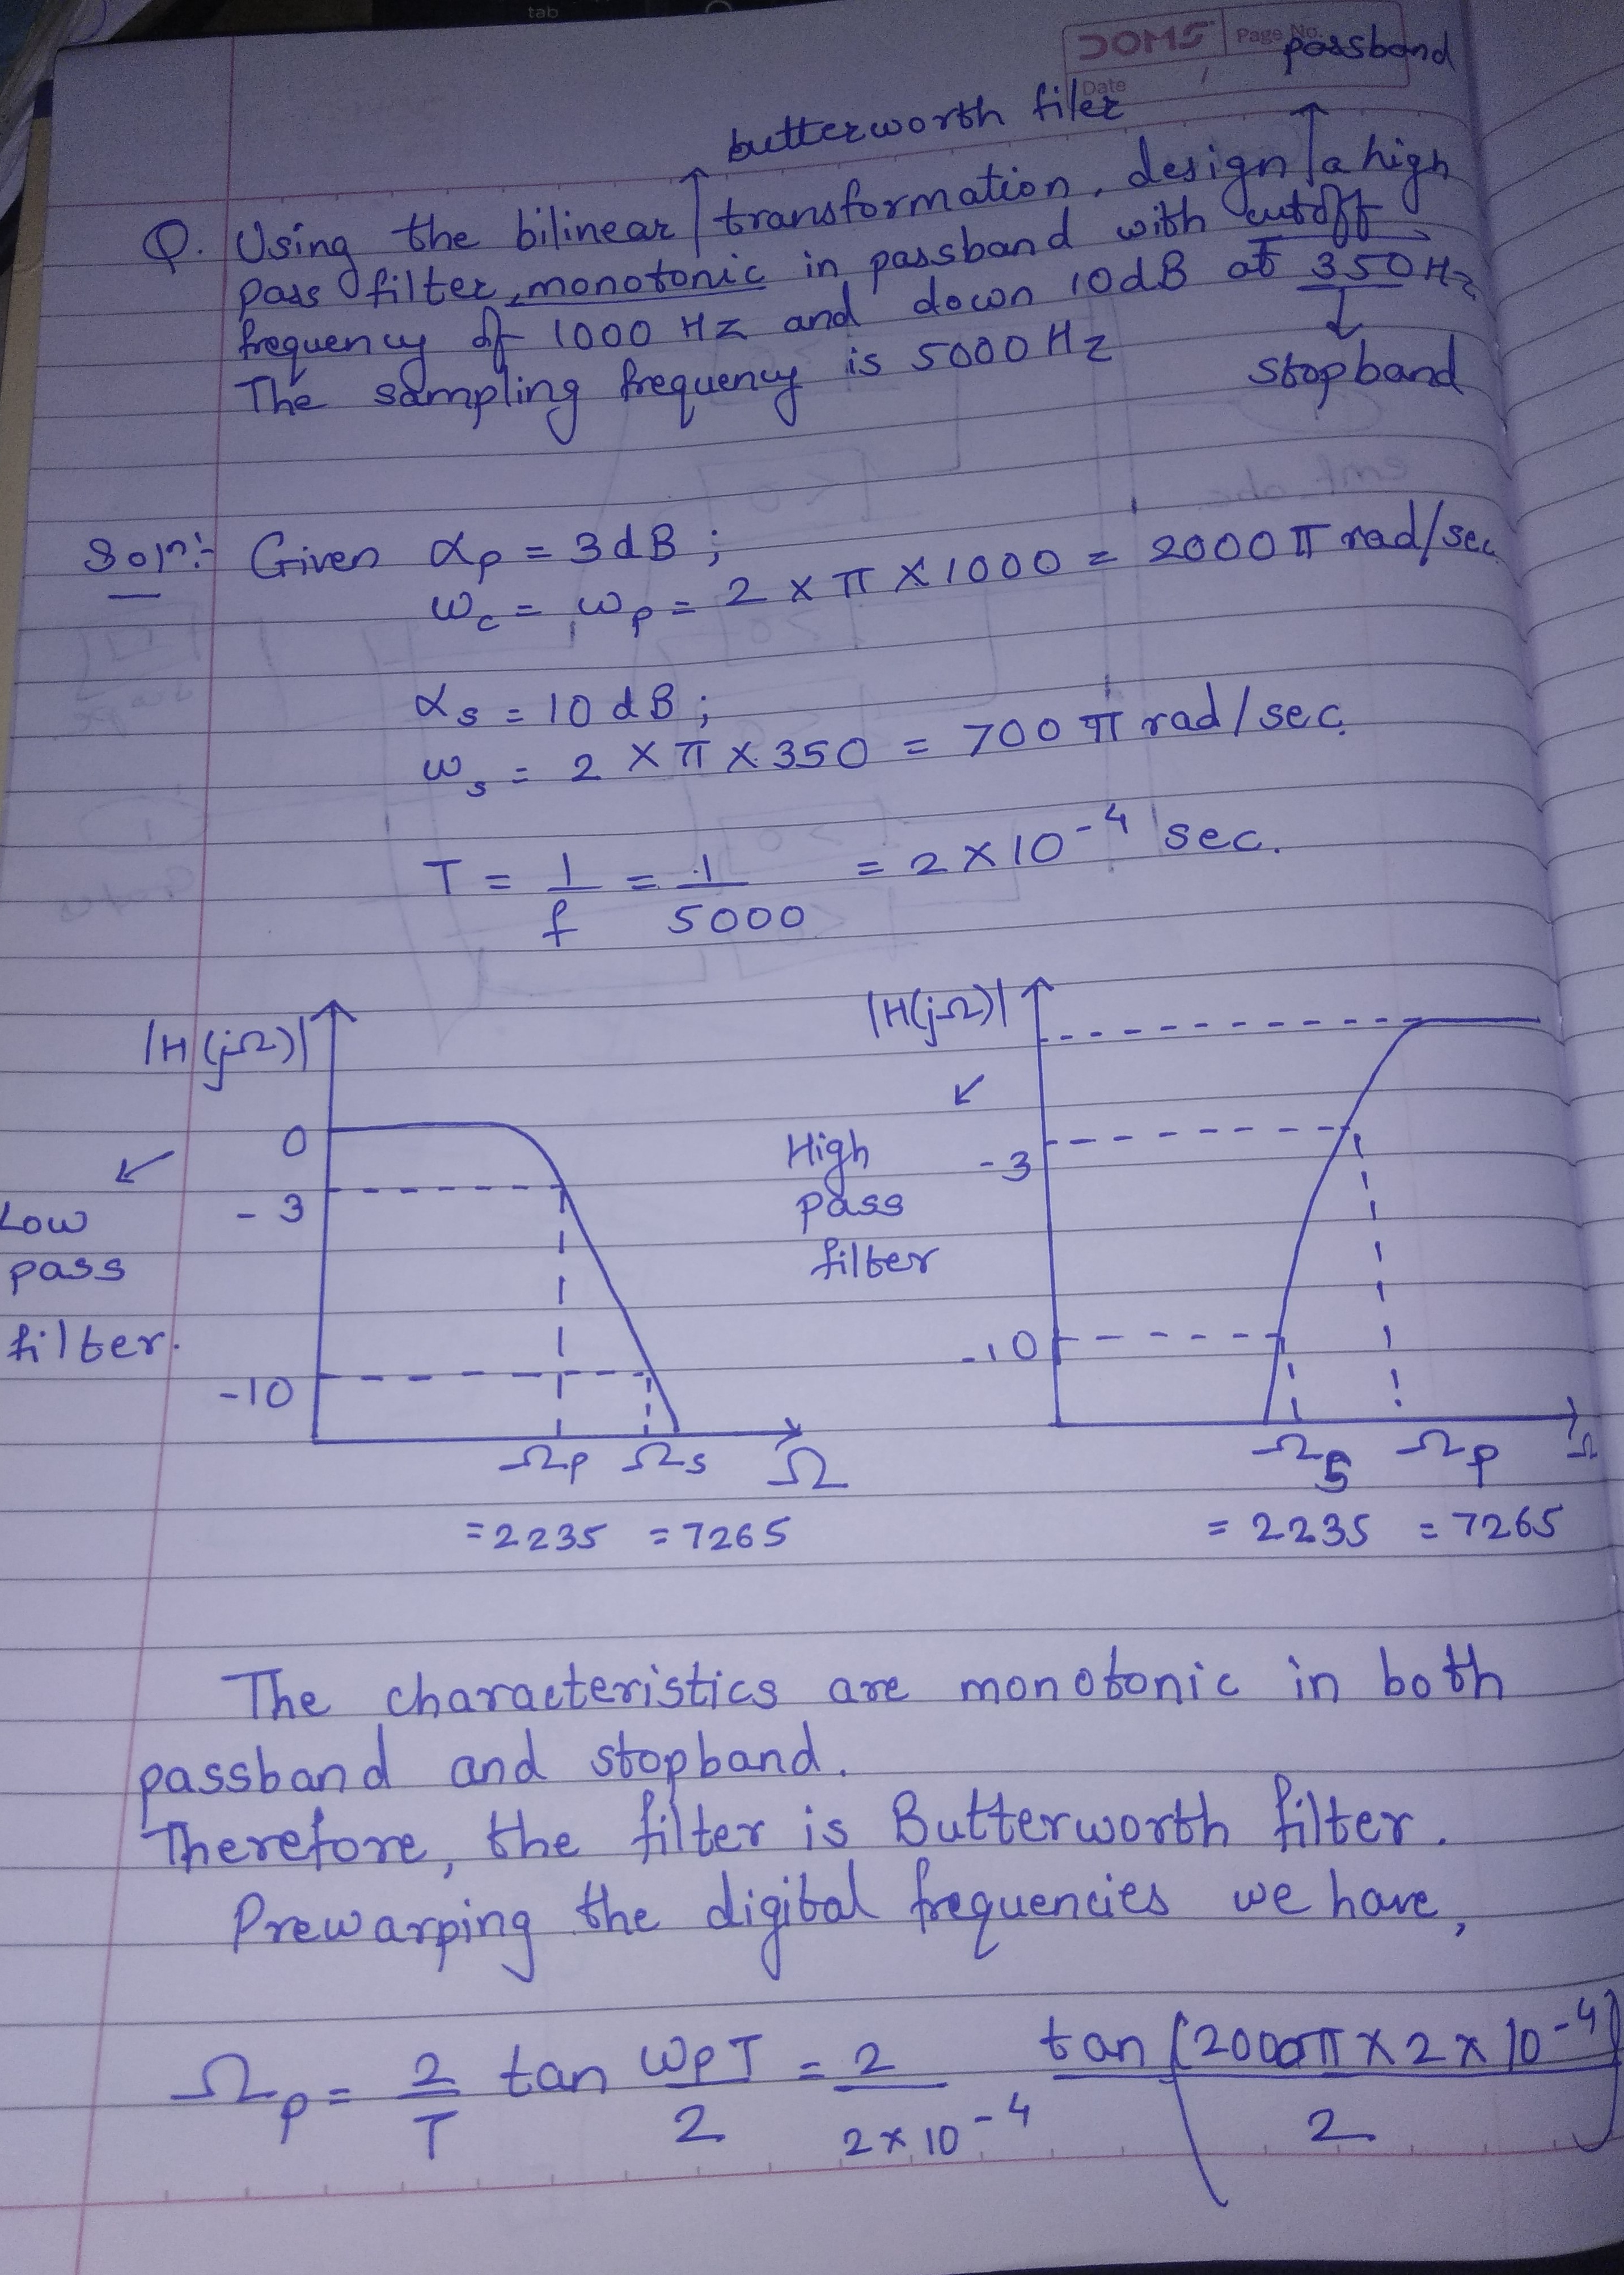 tab
DOMS Page No.
Date /
passband
butterworth filer
Q. Using the bilinear transformation, design a high
pass filter, monotonic in passband with cutoff
frequency of 1000 Hz and down 10dB at 350 Hz
The sampling frequency is 5000 Hz
stopband
Soln:- Given αp = 3dB ;
ωc = ωp = 2 × π × 1000 = 2000 π rad/sec
αs = 10 dB ;
ωs = 2 × π × 350 = 700 π rad/sec.
T = 1/f = 1/5000 = 2×10⁻⁴ sec.
|H(jΩ)|
0
-3
-10
Low
pass
filter.
Ωp Ωs Ω
=2235 =7265
|H(jΩ)|
High
pass
filter
-3
-10
Ωs Ωp Ω
=2235 =7265
The characteristics are monotonic in both
passband and stopband.
Therefore, the filter is Butterworth filter.
Prewarping the digital frequencies we have,
Ωp = 2/T tan ωpT/2 = 2/2×10⁻⁴ tan (2000π × 2 × 10⁻⁴)/2